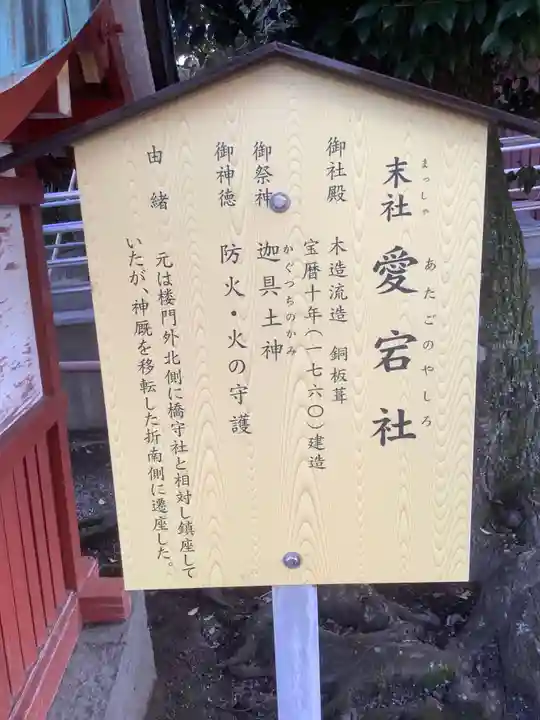 末社 愛宕社
まっしゃ あたごのやしろ
御社殿 木造流造 銅板葺
宝暦十年(一七六〇)建造
御祭神 迦具土神
かぐつちのかみ
御神徳 防火・火の守護
由緒 元は楼門外北側に橋守社と相対し鎮座して
いたが、神厩を移転した折南側に遷座した。